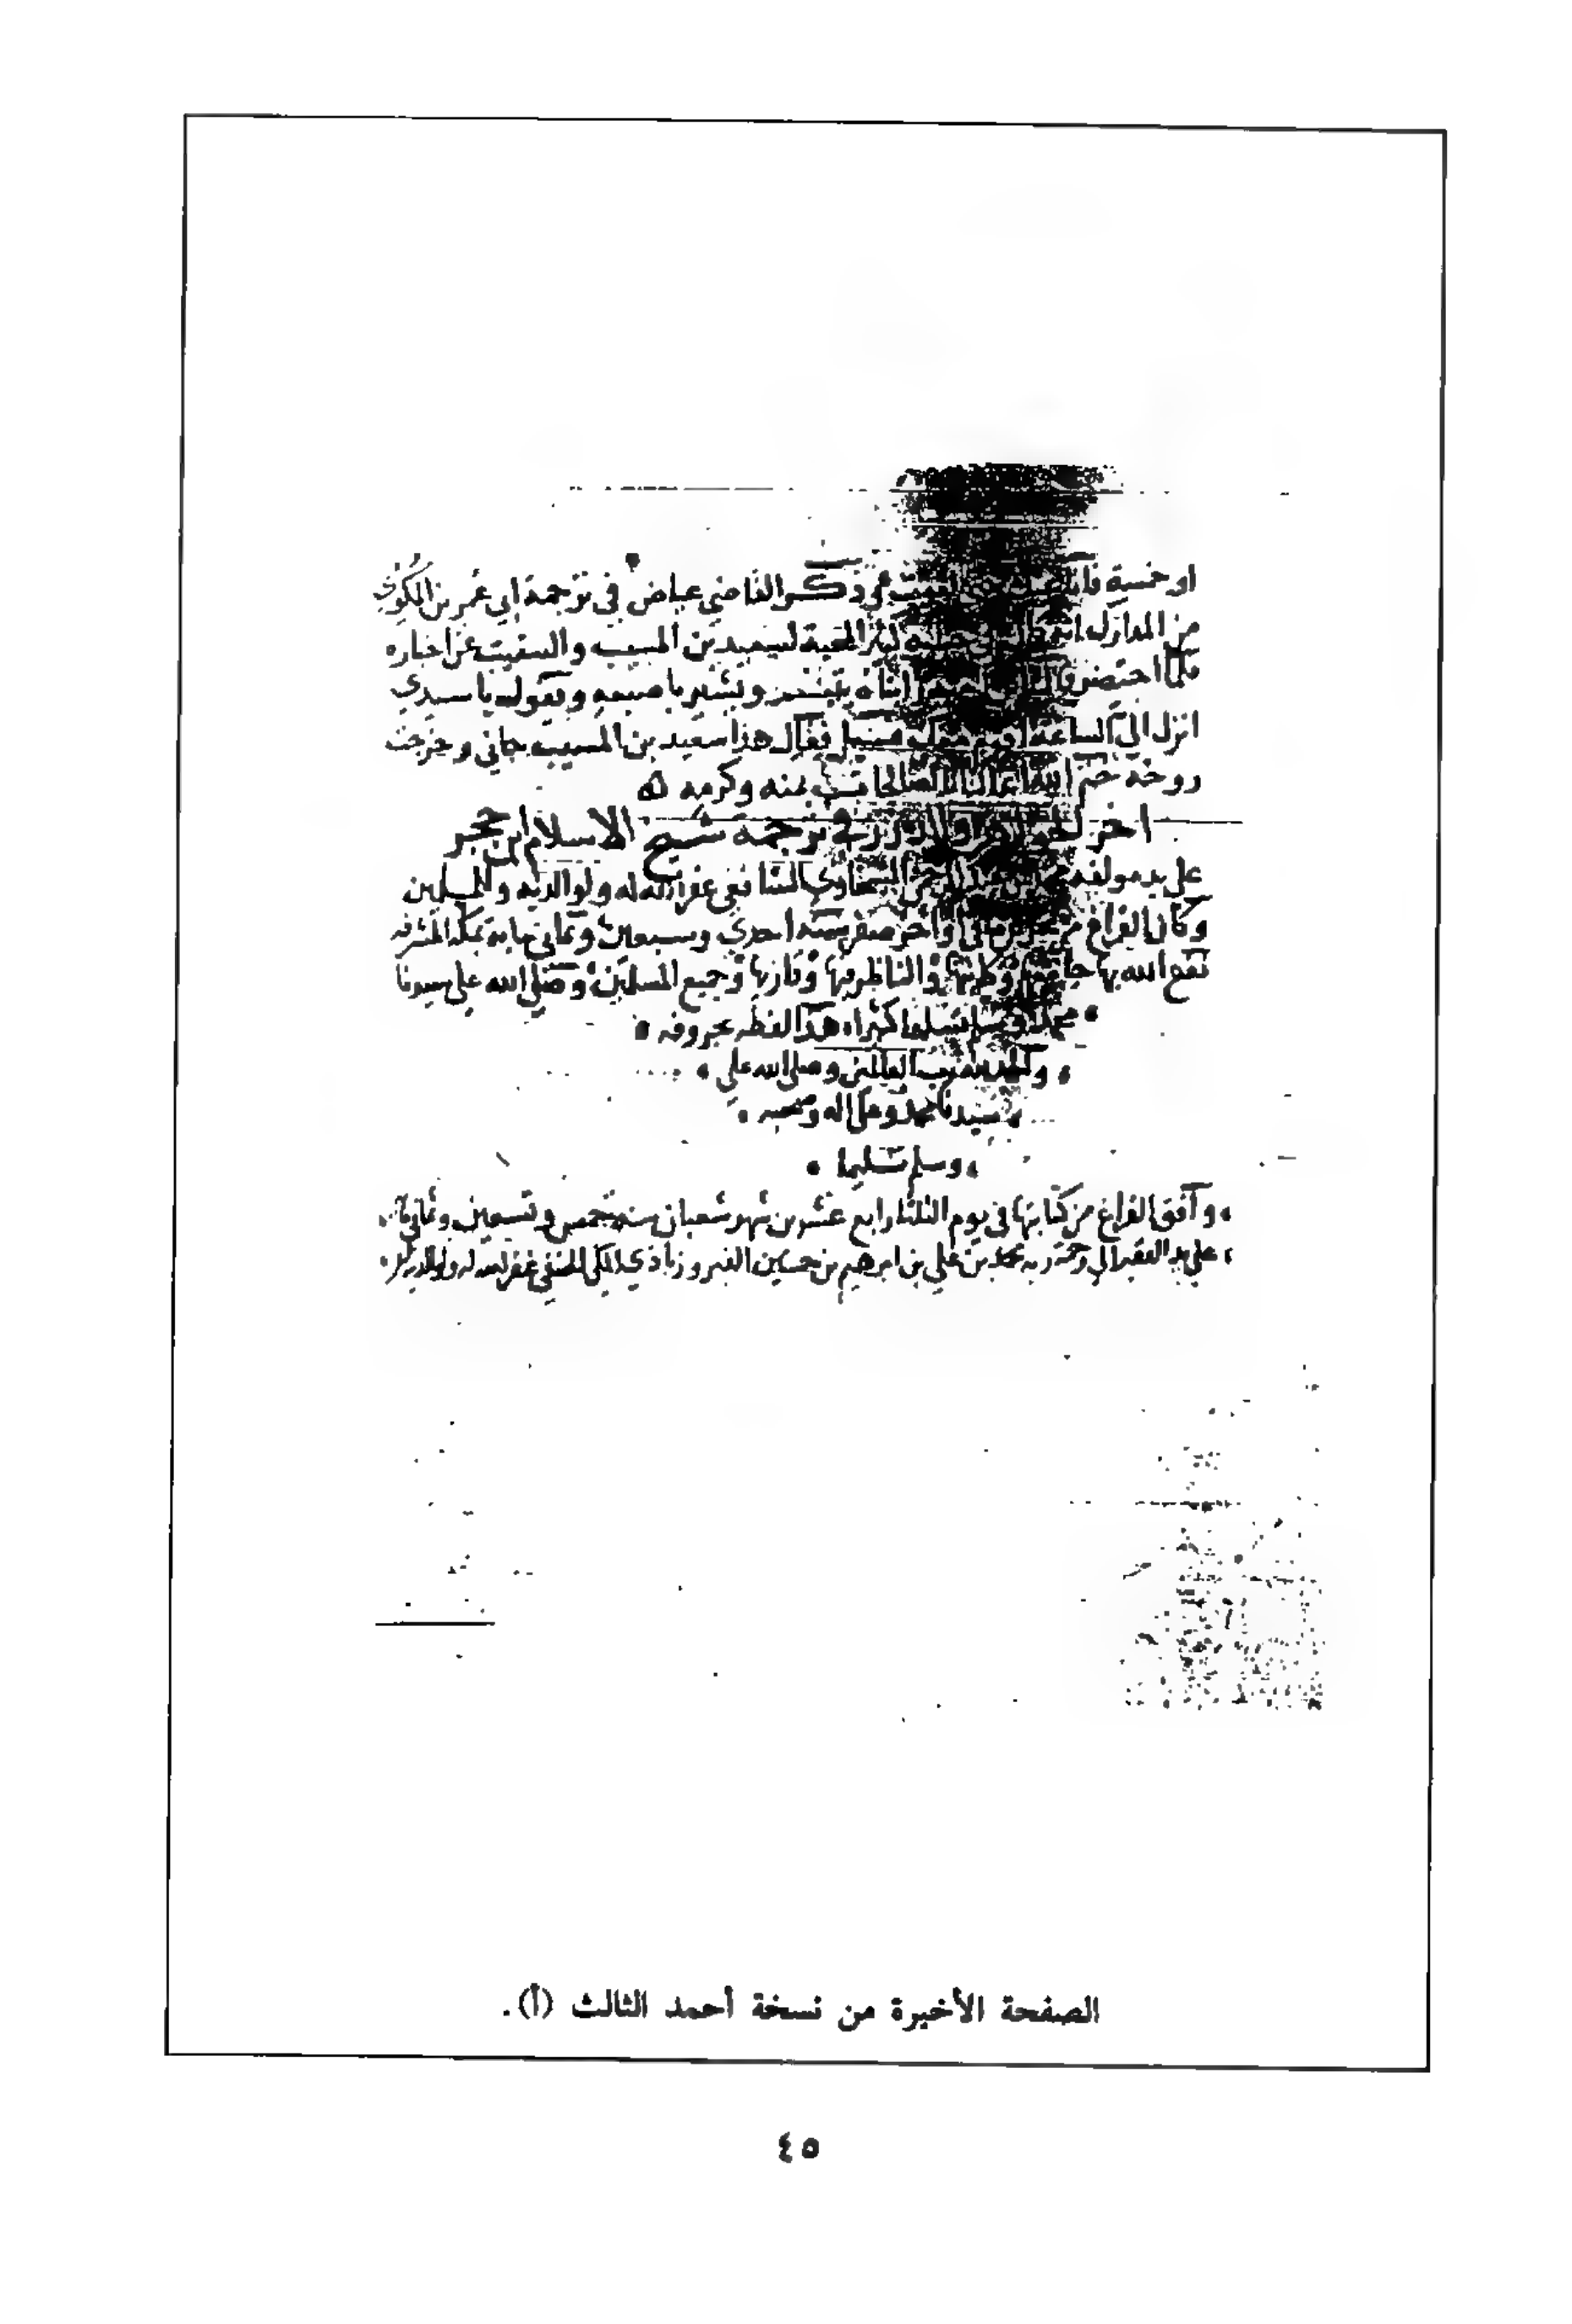 او خمسة وذكر القاضي عياض في ترجمة ابي عمر بن المكوي
من المدارك كثير المحبة لسعيد بن المسيب والتنقيب عن اخباره
فلما احتضر ويشير باصبعه ويقول يا سيدي
انزل الي الساعة فقال هذا سعيد بن المسيب جاني وخرجت
روحه ختم الله اعمالنا بالصالحات بمنه وكرمه
اخر الجواهر والدرر في ترجمة شيخ الاسلام ابن حجر
علي يد مولفه محمد بن عبد الرحمن السخاوي الشافعي غفر الله له ولوالديه والمسلمين
وكان الفراغ واخر صفر سنة احدي وسبعين وثماني ماية بمكة المشرفه
نفع الله بها جامعها وكاتبها والناظر فيها وقارئها وجميع المسلمين وصلي الله علي سيدنا
محمد وسلم تسليما كثيرا هذا لفظه بحروفه
والحمد لله رب العالمين وصلي الله علي
سيدنا محمد وعلي اله وصحبه
وسلم تسليما
ووافق الفراغ من كتابتها في يوم الثلثا رابع عشر من شهر شعبان سنة خمس وتسعين وثماني
علي يد الفقير الي رحمة ربه محمد بن علي بن ابرهيم بن حسين المكي الحنفي غفر الله له ولوالديه
الصفحة الأخيرة من نسخة أحمد الثالث (أ).
٤٥